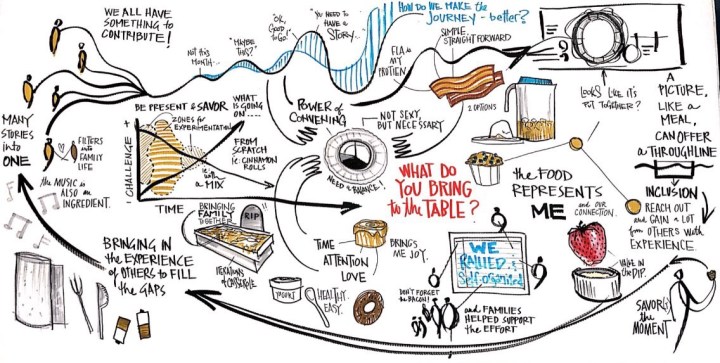 WE ALL HAVE
SOMETHING to
CONTRIBUTE!
NOT this
MONTH...
"MAYBE
this?"
"OK,
GOOD
to GO!"
"YOU NEED to
HAVE a
STORY...
HOW DO WE MAKE the
JOURNEY - better?
SIMPLE,
STRAIGHT FORWARD
MY
PROTIEN
2 OPTIONS
LOOKS LIKE IT'S
PUT TOGETHER?
A
PICTURE,
LIKE a
MEAL,
CAN OFFER
a THROUGHLINE
INCLUSION
REACH OUT
and GAIN A LOT
from OTHERS with
EXPERIENCE.
MANY
STORIES
into
ONE
FILTERS
into
FAMILY
LIFE
the MUSIC is
ALSO an
INGREDIENT.
BE PRESENT & SAVOR
ZONES for
EXPERIMENTATION
CHALLENGE +
WHAT
IS GOING
ON....
FROM
SCRATCH
ie: CINNAMON
ROLLS
with
a MIX
TIME
POWER of
CONVENING
NOT SEXY,
BUT NECESSARY
WHAT DO
YOU BRING
to the TABLE?
the FOOD
REPRESENTS
ME
and OUR
CONNECTION.
BRINGING
FAMILY
TOGETHER
RIP
ITERATIONS
of CASSEROLE
TIME
ATTENTION
LOVE
BRINGS
ME JOY.
YOGURT
HEALTHY.
EASY.
BRINGING IN
the EXPERIENCE
of OTHERS to FILL
the GAPS
WE
RALLIED &
Self-organized
DON'T FORGET
the BACON!
and FAMILIES
HELPED SUPPORT
the EFFORT
VALUE IN
the DIP.
SAVORING
the
MOMENT